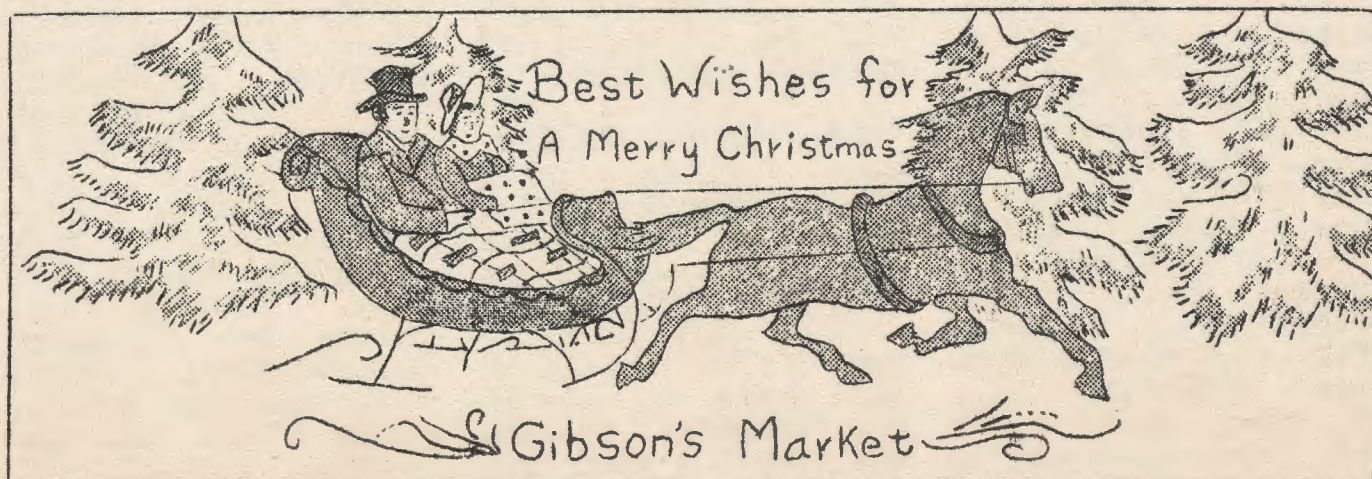 Best Wishes for
A Merry Christmas
Gibson's Market